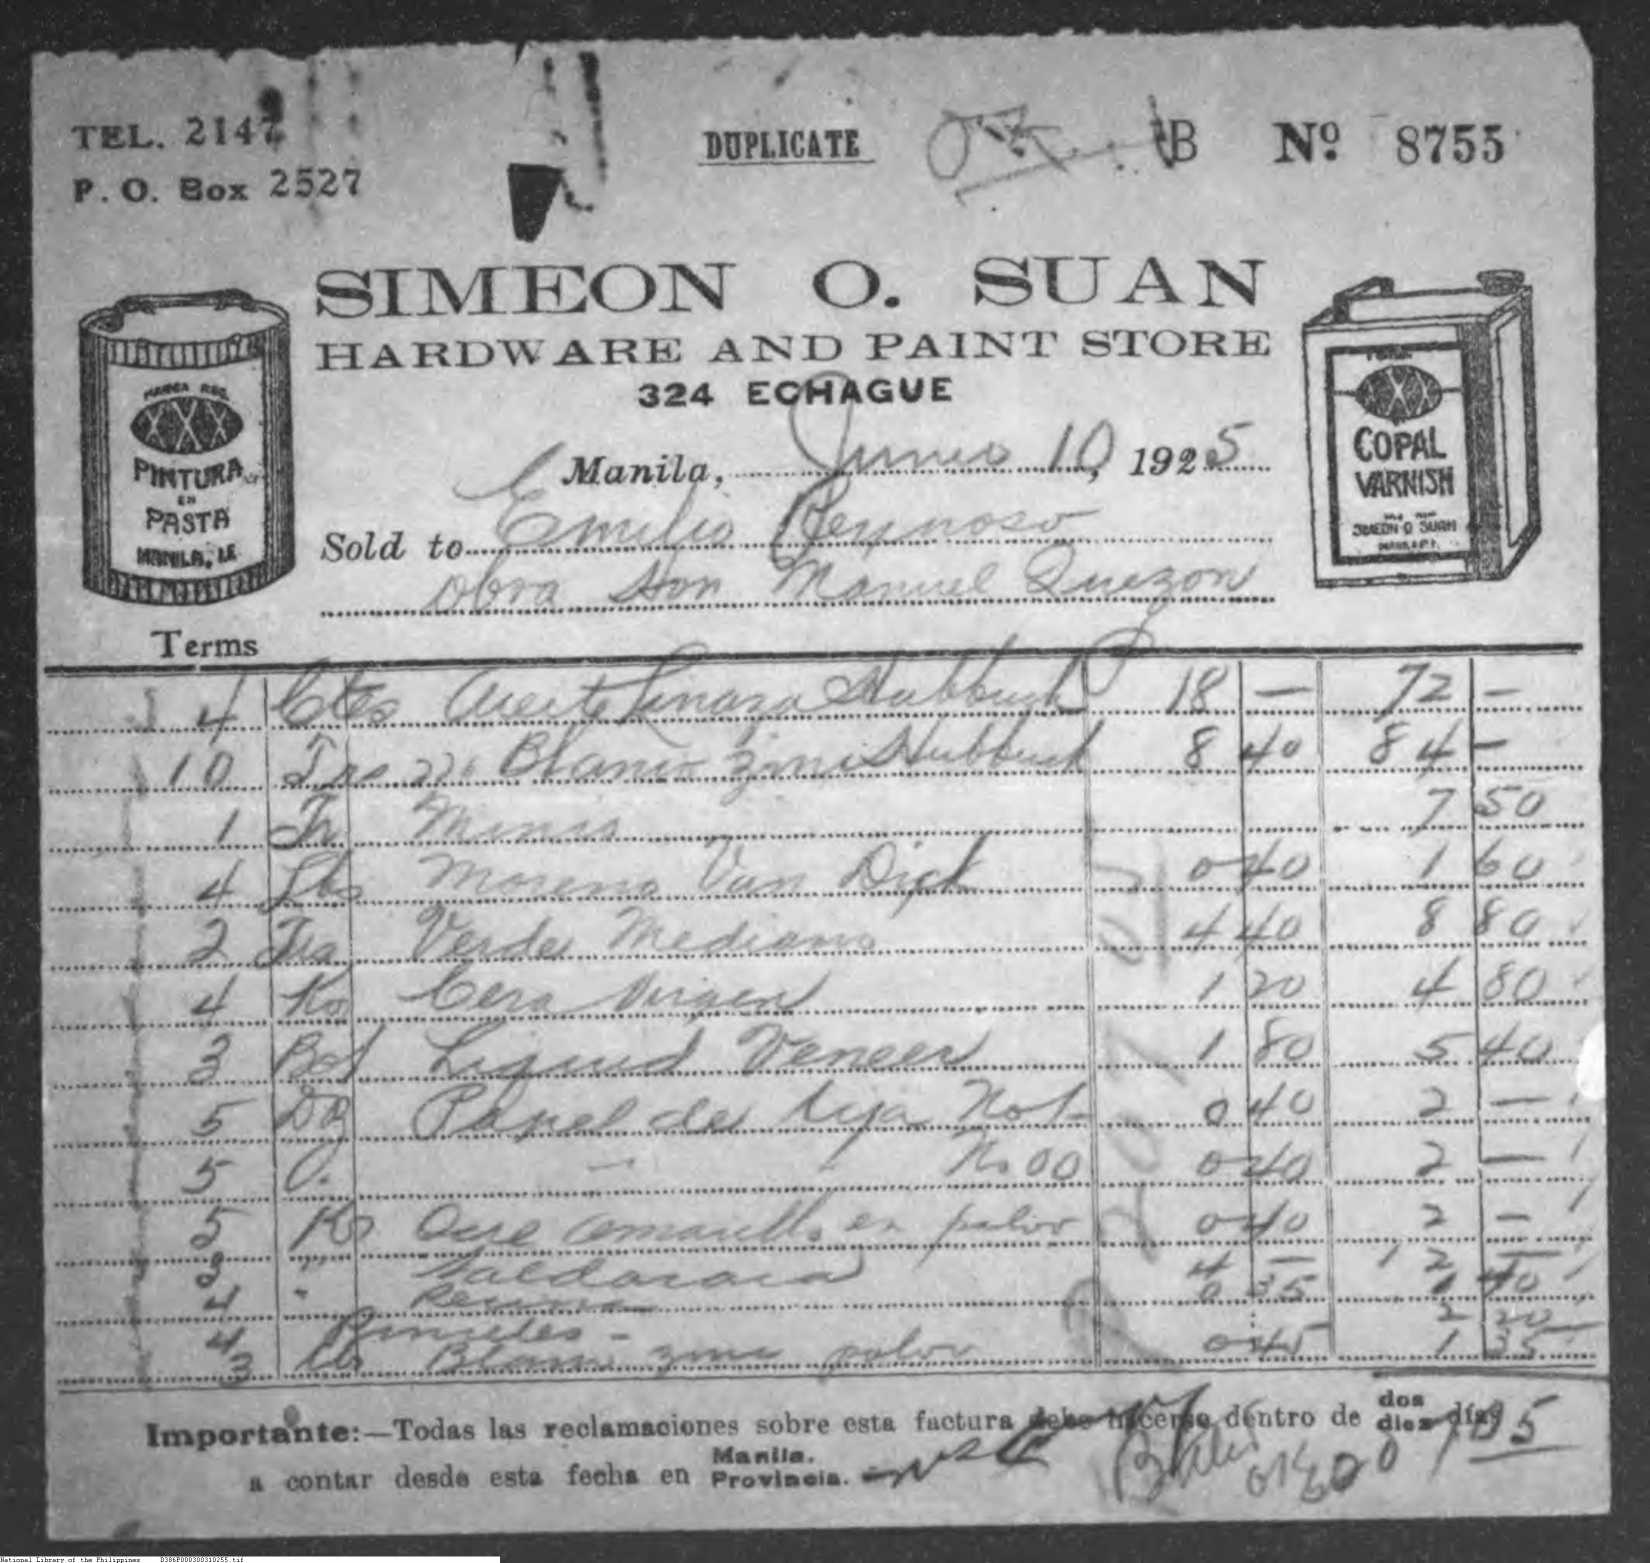 TEL. 2147
DUPLICATE
B Nº 8755
P. O. Box 2527
SIMEON O. SUAN
HARDWARE AND PAINT STORE
324 ECHAGUE
MARCA REG.
XXX
PINTURA
EN
PASTA
MANILA, I.F.
COPAL
VARNISH
SIMEON O SUAN
MANILA P.I.
Manila, Junio 10, 1925
Sold to Emilio Reynoso
obra Hon Manuel Quezon
Terms
4 Ctes Aceite Linaza Hubbuck 18 — 72 —
10 Blanco zinc Hubbuck 8 40 84 —
1 7 50
4 Lbs Moreno Van Dick 0 40 1 60
2 Verde Mediano 4 40 8 80
4 Ks Cera Virgen 1 20 4 80
3 Bot Liquid Veneer 1 80 5 40
5 Dz Papel de lija No 1 0 40 2 —
5 No 00 0 40 2 —
5 Ks Ocre amarillo en polvo 0 40 2 —
3 " 4 — 12 —
4 " Resina 0 35 1 40
4 Pinceles - 2 20
3 Blanco zinc polvo 0 45 1 35
Importante:—Todas las reclamaciones sobre esta factura debe hacerse dentro de dos
diez días
a contar desde esta fecha en Manila.
Provincia.
National Library of the Philippines D386P000300310255.tif